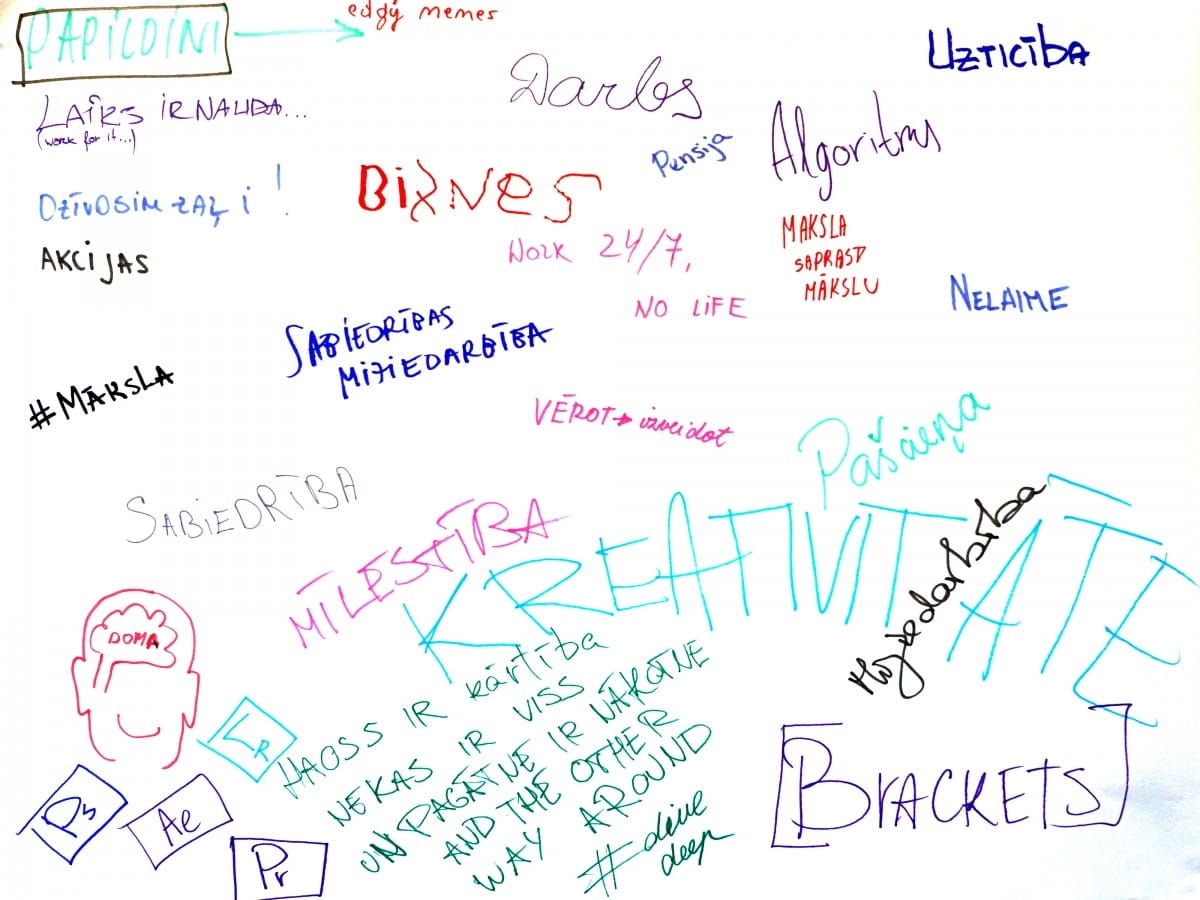 PAPILDINI
edgy memes
UZTICĪBA
Darbs
LAIKS IR NAUDA...
(work for it...)
Algoritms
Pensija
DZĪVOSIM ZAĻI!
BIZNES
MAKSLA
SAPRAST
MĀKSLU
AKCIJAS
WORK 24/7,
NO LIFE
NELAIME
SABIEDRĪBAS
MIJIEDARBĪBA
#MĀKSLA
VĒROT→izveidot
Pašcieņa
SABIEDRĪBA
MĪLESTĪBA
KREATIVITĀTE
Mijiedarbība
DOMA
HAOSS IR kārtība
NEKAS IR VISS
UN PAGĀTNE IR NĀKOTNE
AND THE OTHER
WAY AROUND
#deive
deep
Lr
Ps
Ae
Pr
[BRACKETS]